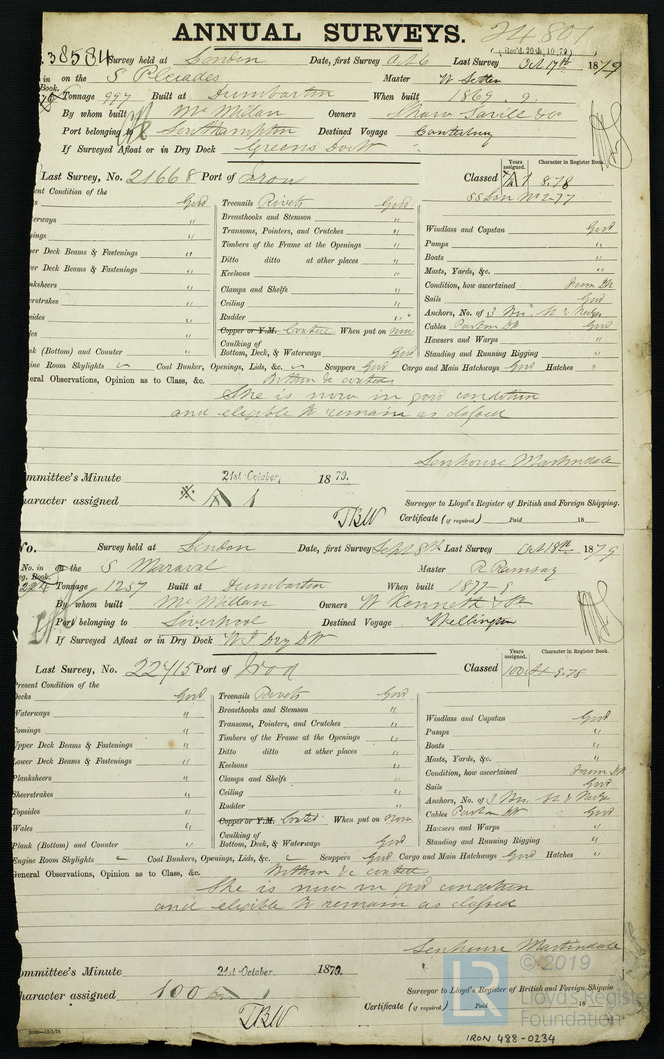 ANNUAL SURVEYS. 24801
Rec'd 20th 10/79
38584 Survey held at London Date, first Survey Oct 6 Last Survey Oct 17th 1879
in on the S Pleiades Master W Setten
Book. Tonnage 997 Built at Dumbarton When built 1869. 9.
By whom built McMillan Owners Shaw Savill & Co
Port belonging to Southampton Destined Voyage Canterbury
If Surveyed Afloat or in Dry Dock Greens Dock
Last Survey, No. 21668 Port of Iron Classed Years assigned. A 1 Character in Register Book. 8.78
SS Lon No 2-77
ent Condition of the
s Good Treenails Rivets Good
Breasthooks and Stemson "
erways " Transoms, Pointers, and Crutches " Windlass and Capstan Good
ings " Timbers of the Frame at the Openings " Pumps "
er Deck Beams & Fastenings " Ditto ditto at other places " Boats "
er Deck Beams & Fastenings " Keelsons " Masts, Yards, &c. "
nksheers " Clamps and Shelfs " Condition, how ascertained From Dk
rstrakes " Ceiling " Sails Good
sides " Rudder " Anchors, No. of 3 Brs. St & Kedge
les " Copper or Y.M. Coated When put on now Cables Part on Dk Good
Caulking of Hawsers and Warps "
nk (Bottom) and Counter " Bottom, Deck, & Waterways Good Standing and Running Rigging "
ine Room Skylights Coal Bunker, Openings, Lids, &c. Scuppers Good Cargo and Main Hatchways Good Hatches "
eral Observations, Opinion as to Class, &c. Bottom &c coated
She is now in good condition
and eligible to remain as classed
Senhouse Martindale
mmittee's Minute 21st October, 1879.
aracter assigned A 1 Surveyor to Lloyd's Register of British and Foreign Shipping.
TBW Certificate (if required) Paid 18
No. Survey held at London Date, first Survey Sept 8th Last Survey Oct 18th 1879
No. in on the S Maraval Master R Ramsay
eg. Book. Tonnage 1257 Built at Dumbarton When built 1877
By whom built McMillan Owners W Kenneth & Co
Port belonging to Liverpool Destined Voyage Wellington
If Surveyed Afloat or in Dry Dock W I Dry Dk
Last Survey, No. 22415 Port of Iron Classed Years assigned. 100 A 1 Character in Register Book. 8.78
Present Condition of the
Decks Good Treenails Rivets Good
Breasthooks and Stemson "
Waterways " Transoms, Pointers, and Crutches " Windlass and Capstan Good
Comings " Timbers of the Frame at the Openings " Pumps "
Upper Deck Beams & Fastenings " Ditto ditto at other places " Boats "
Lower Deck Beams & Fastenings " Keelsons " Masts, Yards, &c. "
Planksheers " Clamps and Shelfs " Condition, how ascertained From Dk
Sheerstrakes " Ceiling " Sails Good
Topsides " Rudder " Anchors, No. of 3 Brs. St & Kedge
Wales " Copper or Y.M. Coated When put on now Cables Part on Dk Good
Caulking of Hawsers and Warps "
Plank (Bottom) and Counter " Bottom, Deck, & Waterways Good Standing and Running Rigging "
Engine Room Skylights Coal Bunkers, Openings, Lids, &c. Scuppers Good Cargo and Main Hatchways Good Hatches "
General Observations, Opinion as to Class, &c. Bottom &c coated
She is now in good condition
and eligible to remain as classed
Senhouse Martindale
ommittee's Minute 21st October 1879.
haracter assigned 100 A 1 Surveyor to Lloyd's Register of British and Foreign Shippin
TBW Certificate (if required) Paid 18
© 2019
LR Lloyd's Register
Foundation
IRON 488-0234